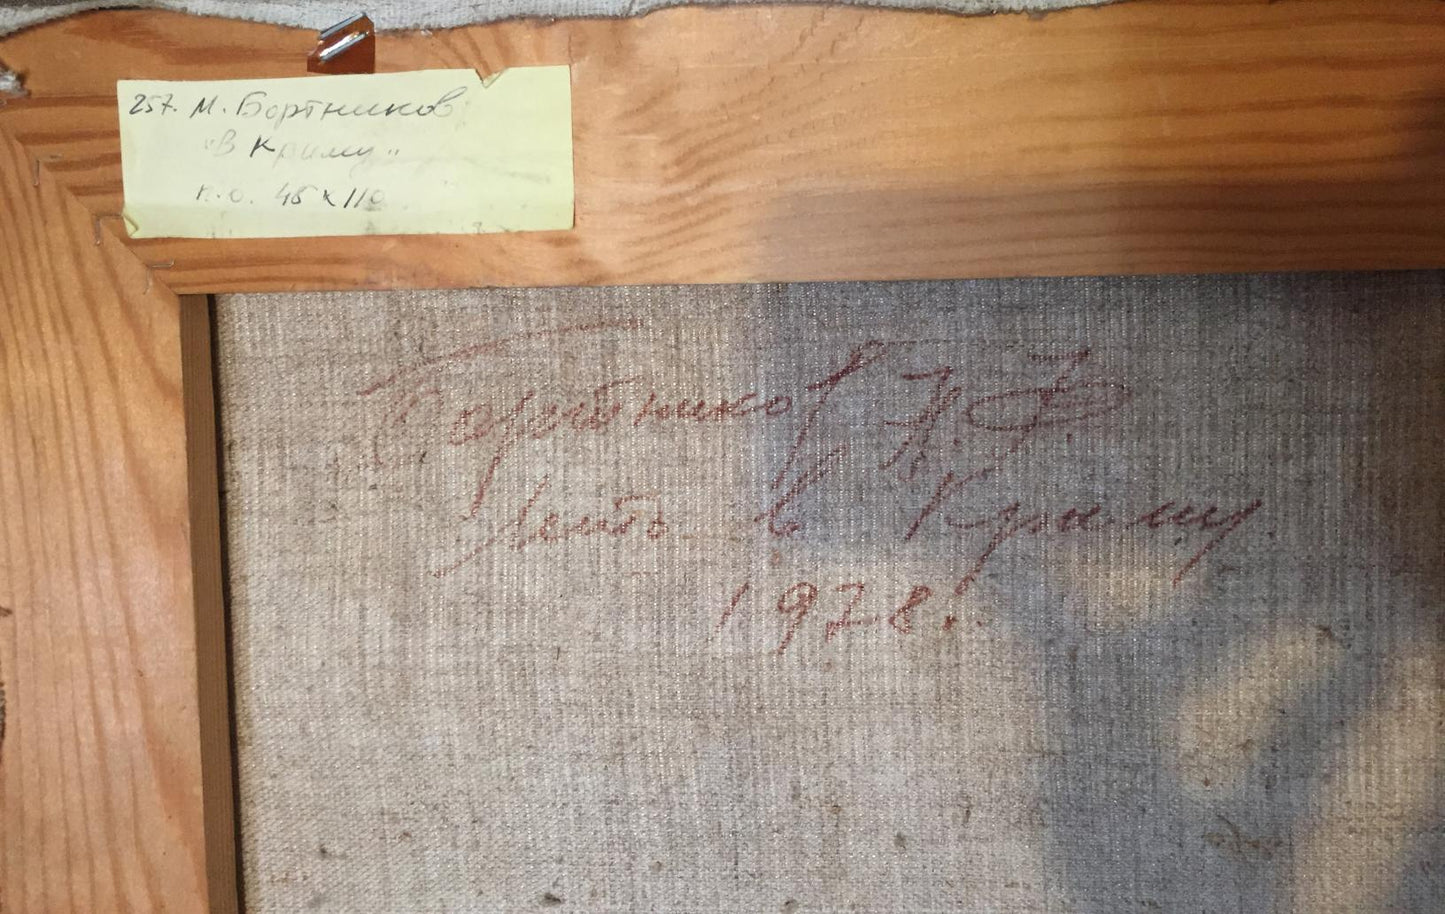 257. М. Бортников
"В Криму"
п.о. 45 х 110
Бортников Н.Ф
Лето в Крыму
1978г.